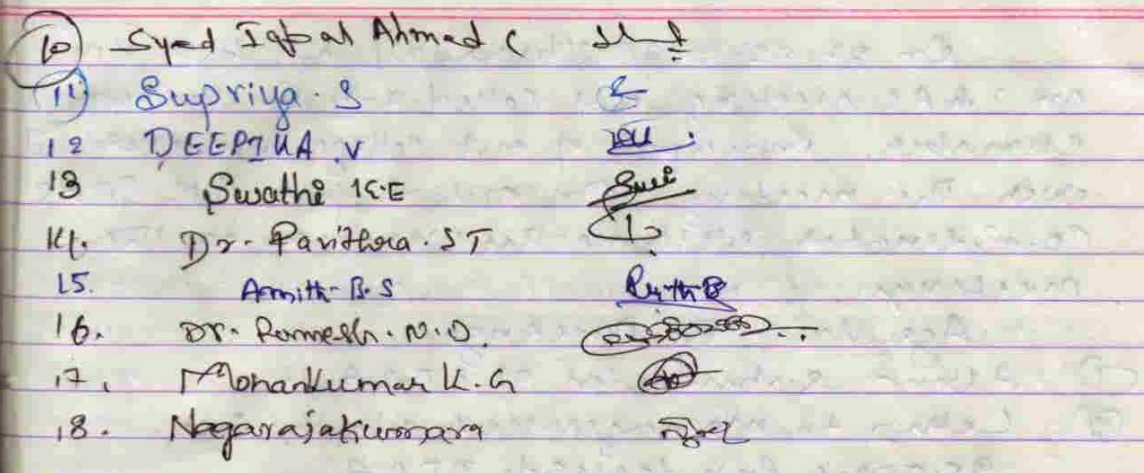 10 Syed Iqbal Ahmad C
11) Supriya. S
12 DEEPIKA .V
13 Swathi K.E
14. Dr. Pavithra. S T
15. Amith. B. S
16. Dr. Ramesh. N. D.
17. Mohankumar K. G
18. Nagarajakumara